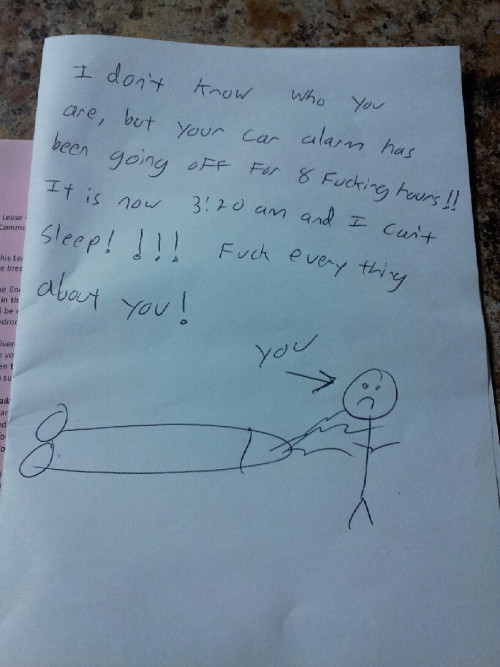 I don't know who you
are, but your car alarm has
been going off for 8 Fucking hours!!
It is now 3:20 am and I can't
Sleep! !!! Fuck every thing
about you!
you
Lease
Commu
his Lea
e brea
he En
in th
l be
droo
iver
o yo
en t
su